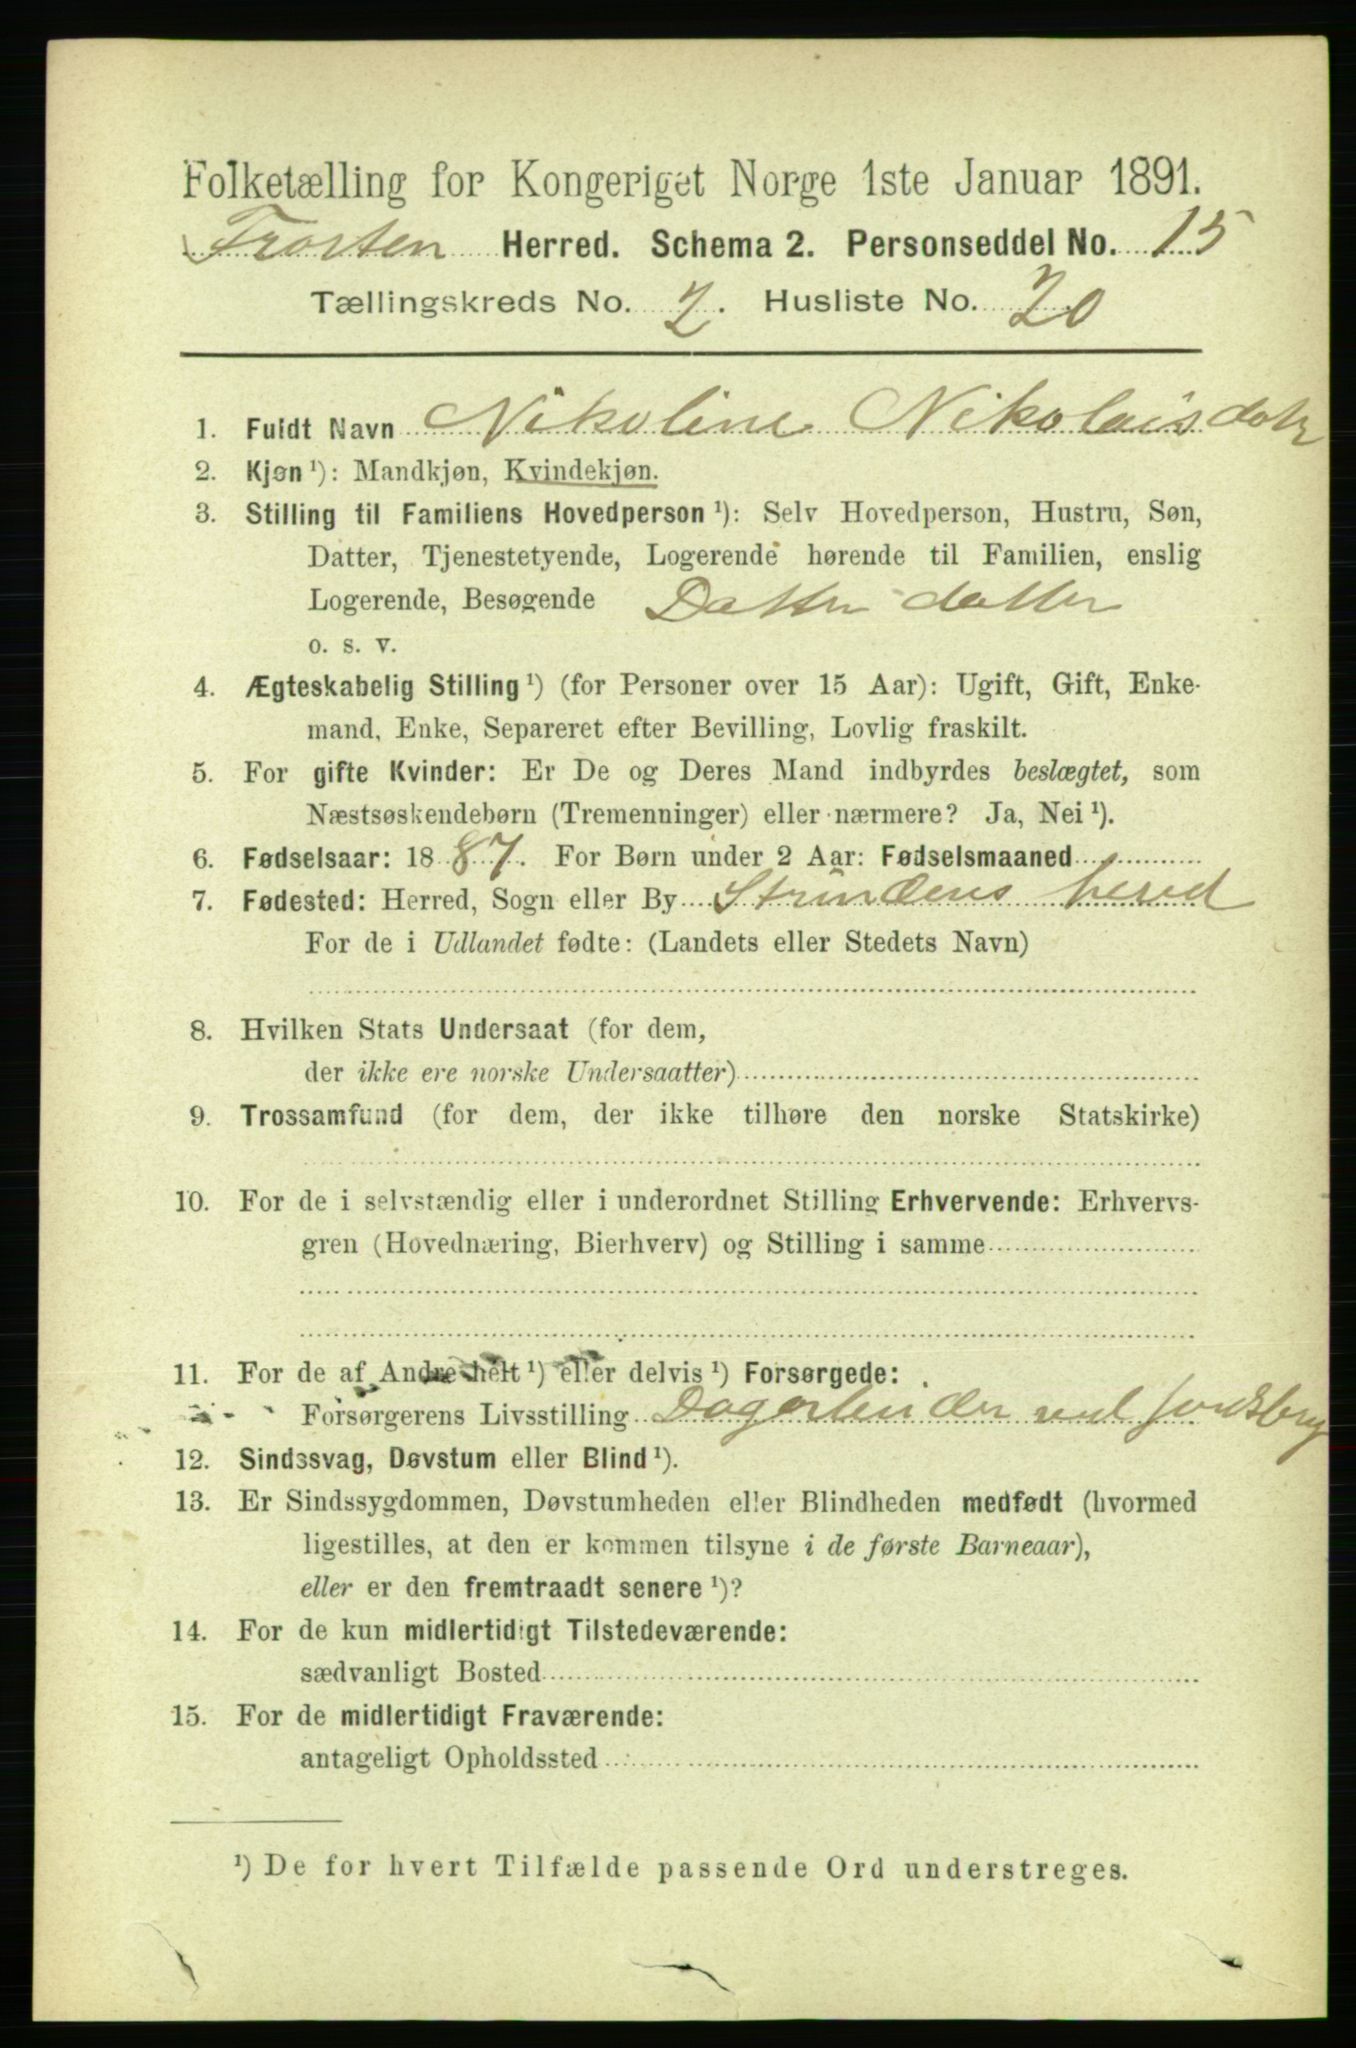 Folketælling for Kongeriget Norge 1ste Januar 1891.
Frosten Herred. Schema 2. Personseddel No. 15
Tællingskreds No. 2. Husliste No. 20
1. Fuldt Navn Nikoline Nikolaisdatr
2. Kjøn ¹): Mandkjøn, Kvindekjøn.
3. Stilling til Familiens Hovedperson ¹): Selv Hovedperson, Hustru, Søn,
Datter, Tjenestetyende, Logerende hørende til Familien, enslig
Logerende, Besøgende Datter datter
o. s. v.
4. Ægteskabelig Stilling ¹) (for Personer over 15 Aar): Ugift, Gift, Enke-
mand, Enke, Separeret efter Bevilling, Lovlig fraskilt.
5. For gifte Kvinder: Er De og Deres Mand indbyrdes beslægtet, som
Næstsøskendebørn (Tremenninger) eller nærmere? Ja, Nei ¹).
6. Fødselsaar: 1887. For Børn under 2 Aar: Fødselsmaaned
7. Fødested: Herred, Sogn eller By Strindens herred
For de i Udlandet fødte: (Landets eller Stedets Navn)
8. Hvilken Stats Undersaat (for dem,
der ikke ere norske Undersaatter)
9. Trossamfund (for dem, der ikke tilhøre den norske Statskirke)
10. For de i selvstændig eller i underordnet Stilling Erhvervende: Erhvervs-
gren (Hovednæring, Bierhverv) og Stilling i samme
11. For de af Andre helt ¹) eller delvis ¹) Forsørgede:
Forsørgerens Livsstilling Dagarbeider ved
12. Sindssvag, Døvstum eller Blind ¹).
13. Er Sindssygdommen, Døvstumheden eller Blindheden medfødt (hvormed
ligestilles, at den er kommen tilsyne i de første Barneaar),
eller er den fremtraadt senere ¹)?
14. For de kun midlertidigt Tilstedeværende:
sædvanligt Bosted
15. For de midlertidigt Fraværende:
antageligt Opholdssted
¹) De for hvert Tilfælde passende Ord understreges.